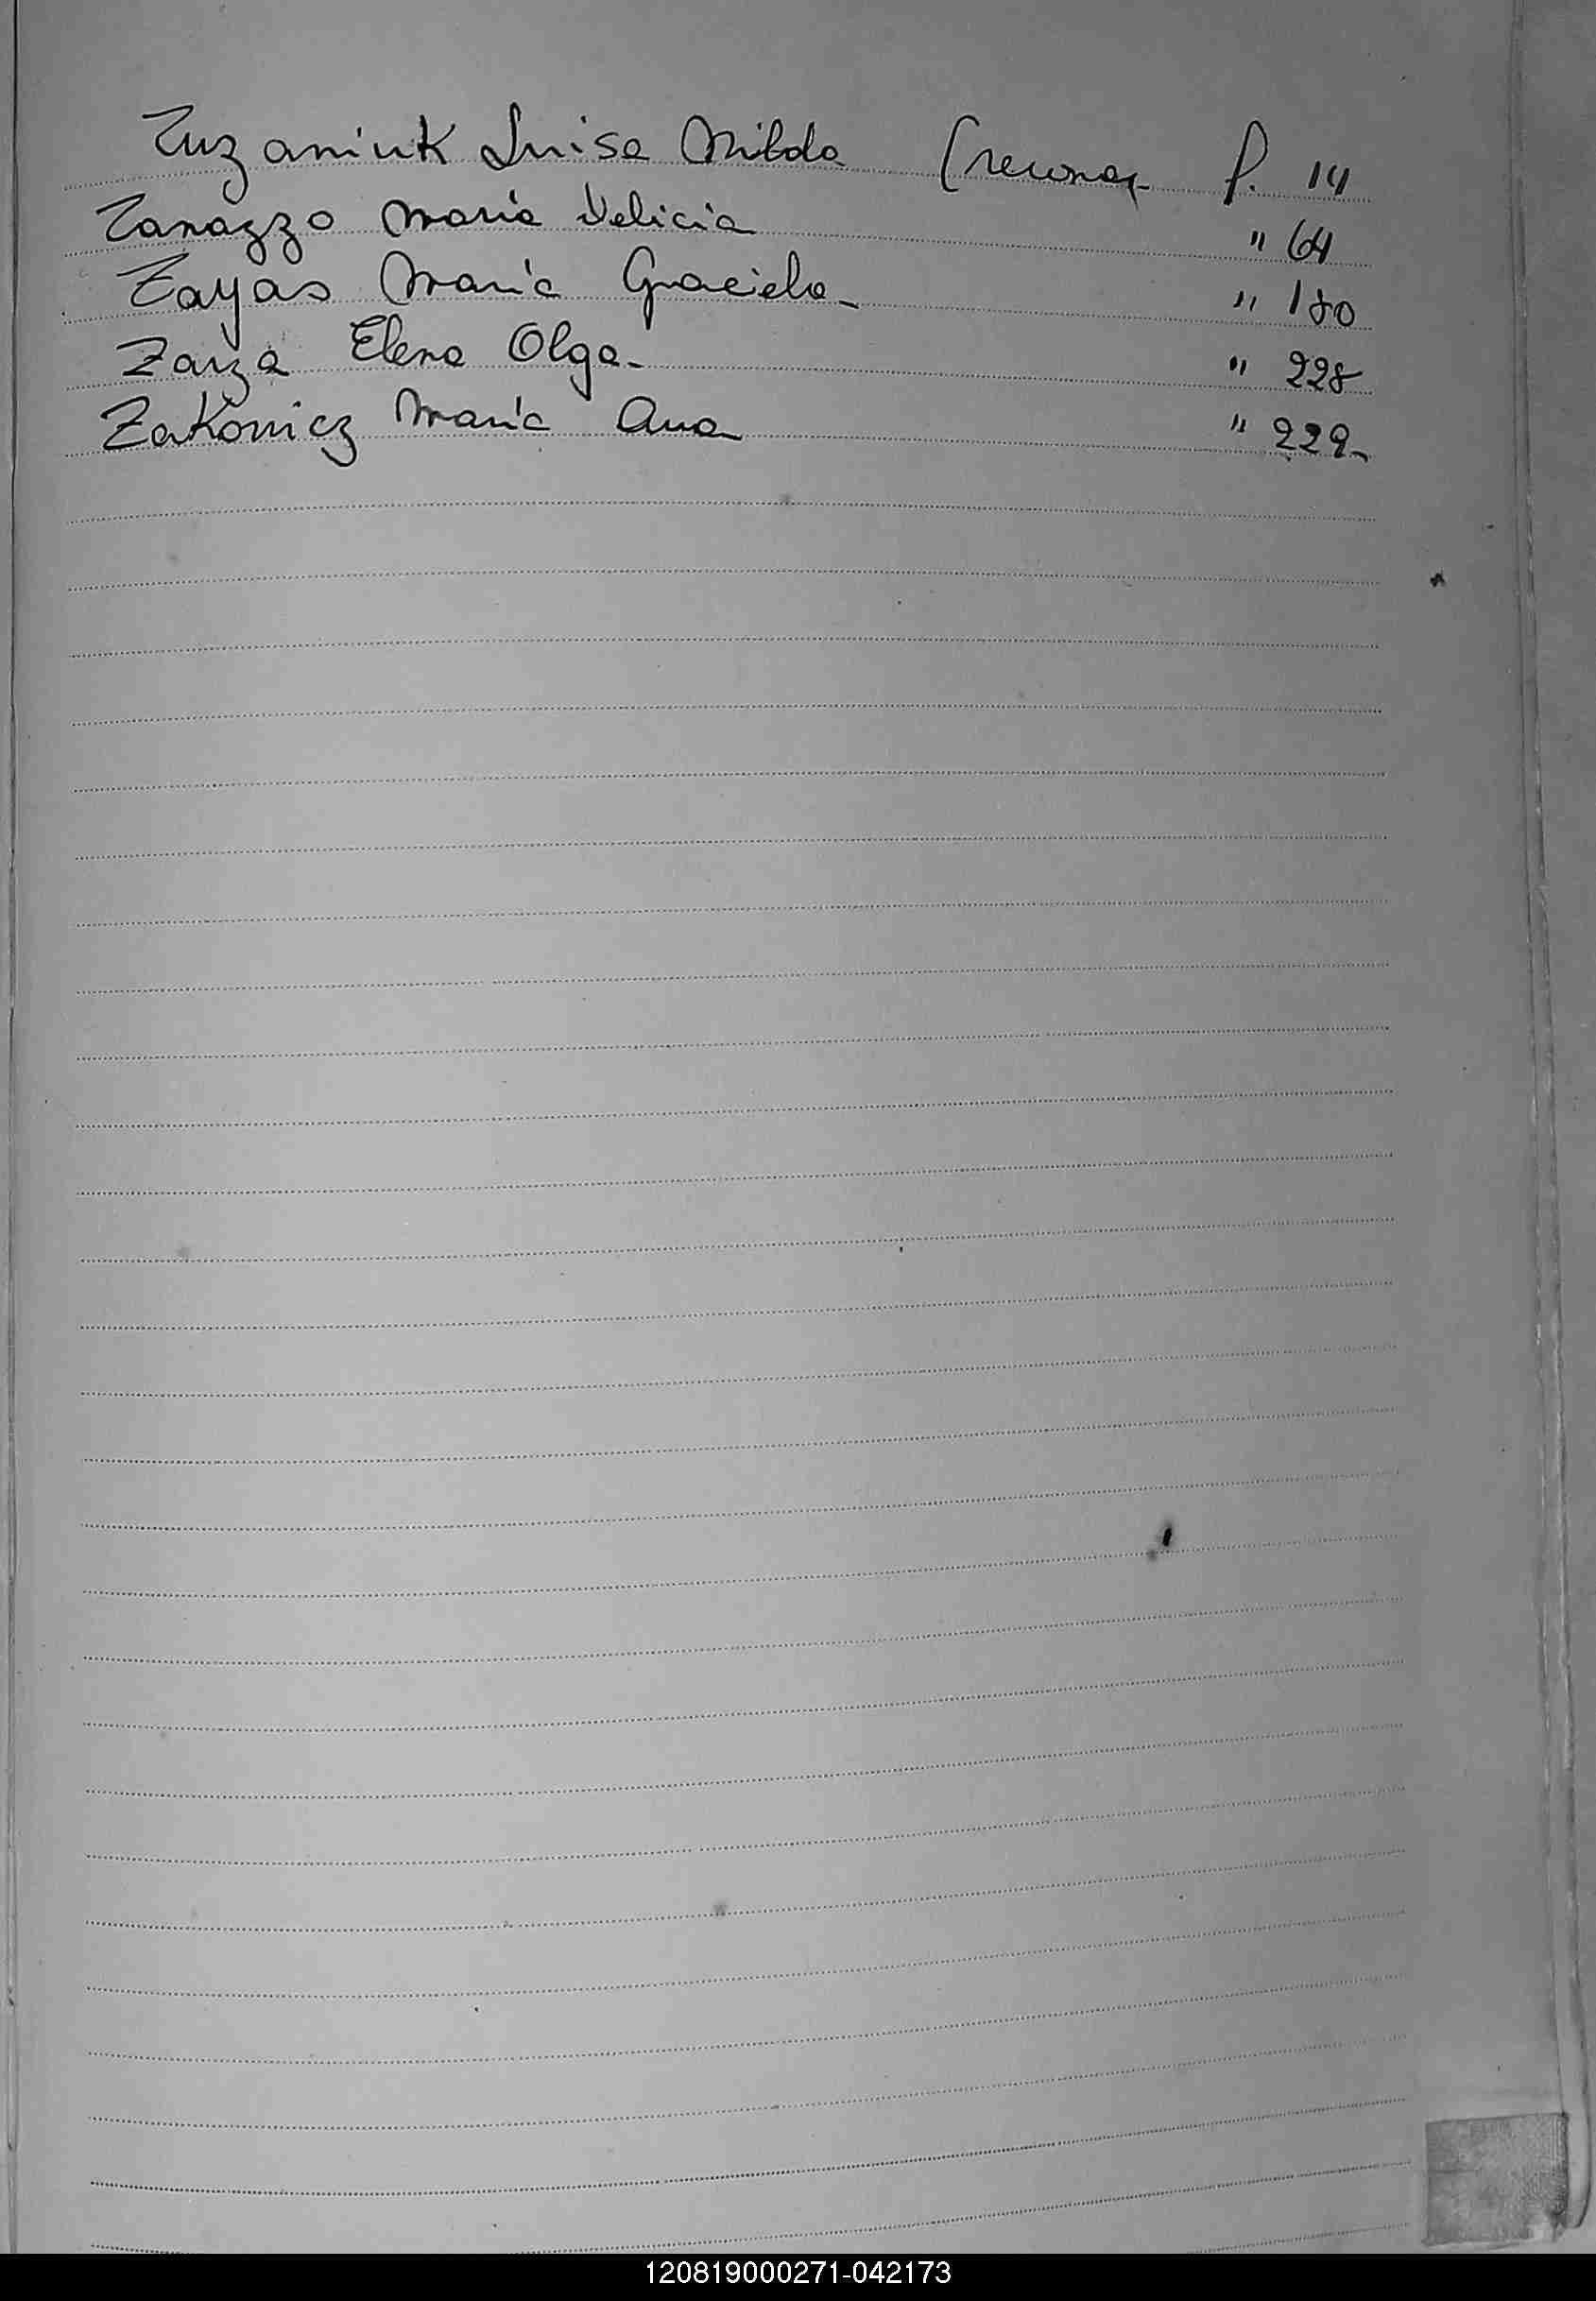 Zuzaniuk Luisa Milda (reconoc. f. 14
Zanazzo María Delicia " 64
Zayas María Graciela - " 180
Zarza Elena Olga - " 228
Zakonicz María Ana " 229 -
120819000271-042173